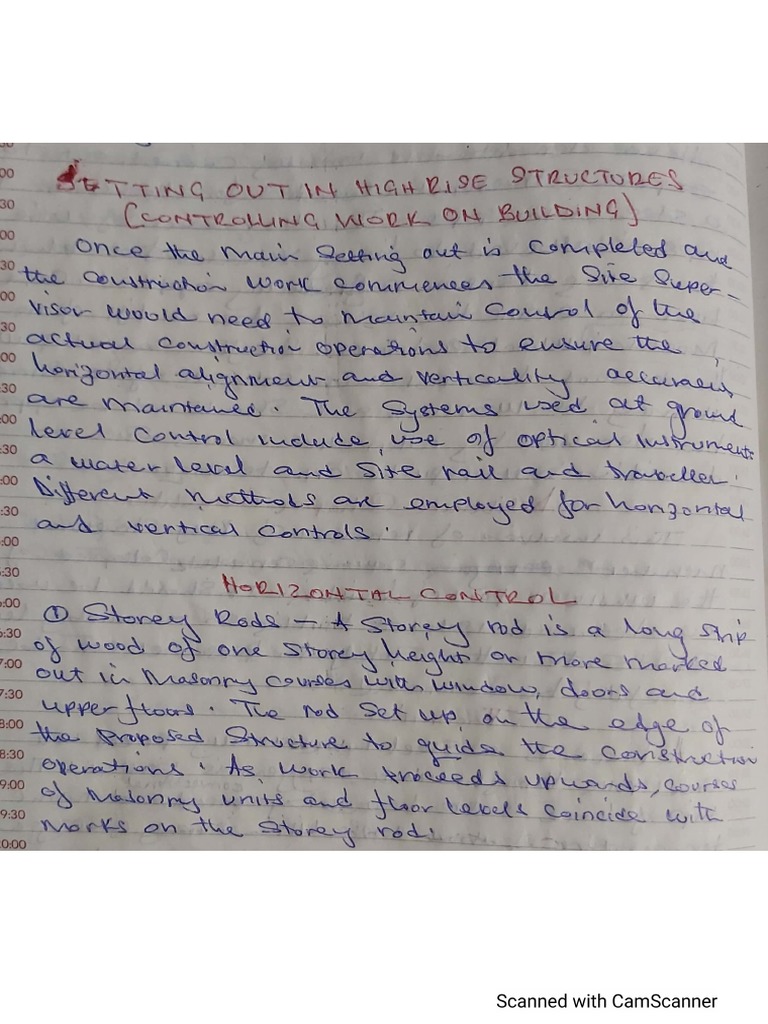 00
SETTING OUT IN HIGH RISE STRUCTURES
30
(CONTROLLING WORK ON BUILDING)
00
Once the main setting out is completed and
30
the construction work commences the Site Super-
00
visor would need to maintain control of the
30
actual construction operations to ensure the
00
horizontal alignment and verticality accuracy
:30
are maintained. The Systems used at ground
:00
level control include use of optical instruments
:30
a water level and site rail and traveller.
:00
Different methods are employed for horizontal
:30
and vertical controls.
:00
:30
HORIZONTAL CONTROL
5:00
① Storey Rods – A Storey rod is a long strip
6:30
of wood of one storey height or more marked
7:00
out in Masonry courses with window, doors and
7:30
upper floors. The rod set up on the edge of
8:00
the proposed structure to guide the construction
8:30
operations. As work proceeds upwards, courses
9:00
of masonry units and floor levels coincide with
9:30
marks on the storey rod.
0:00
Scanned with CamScanner